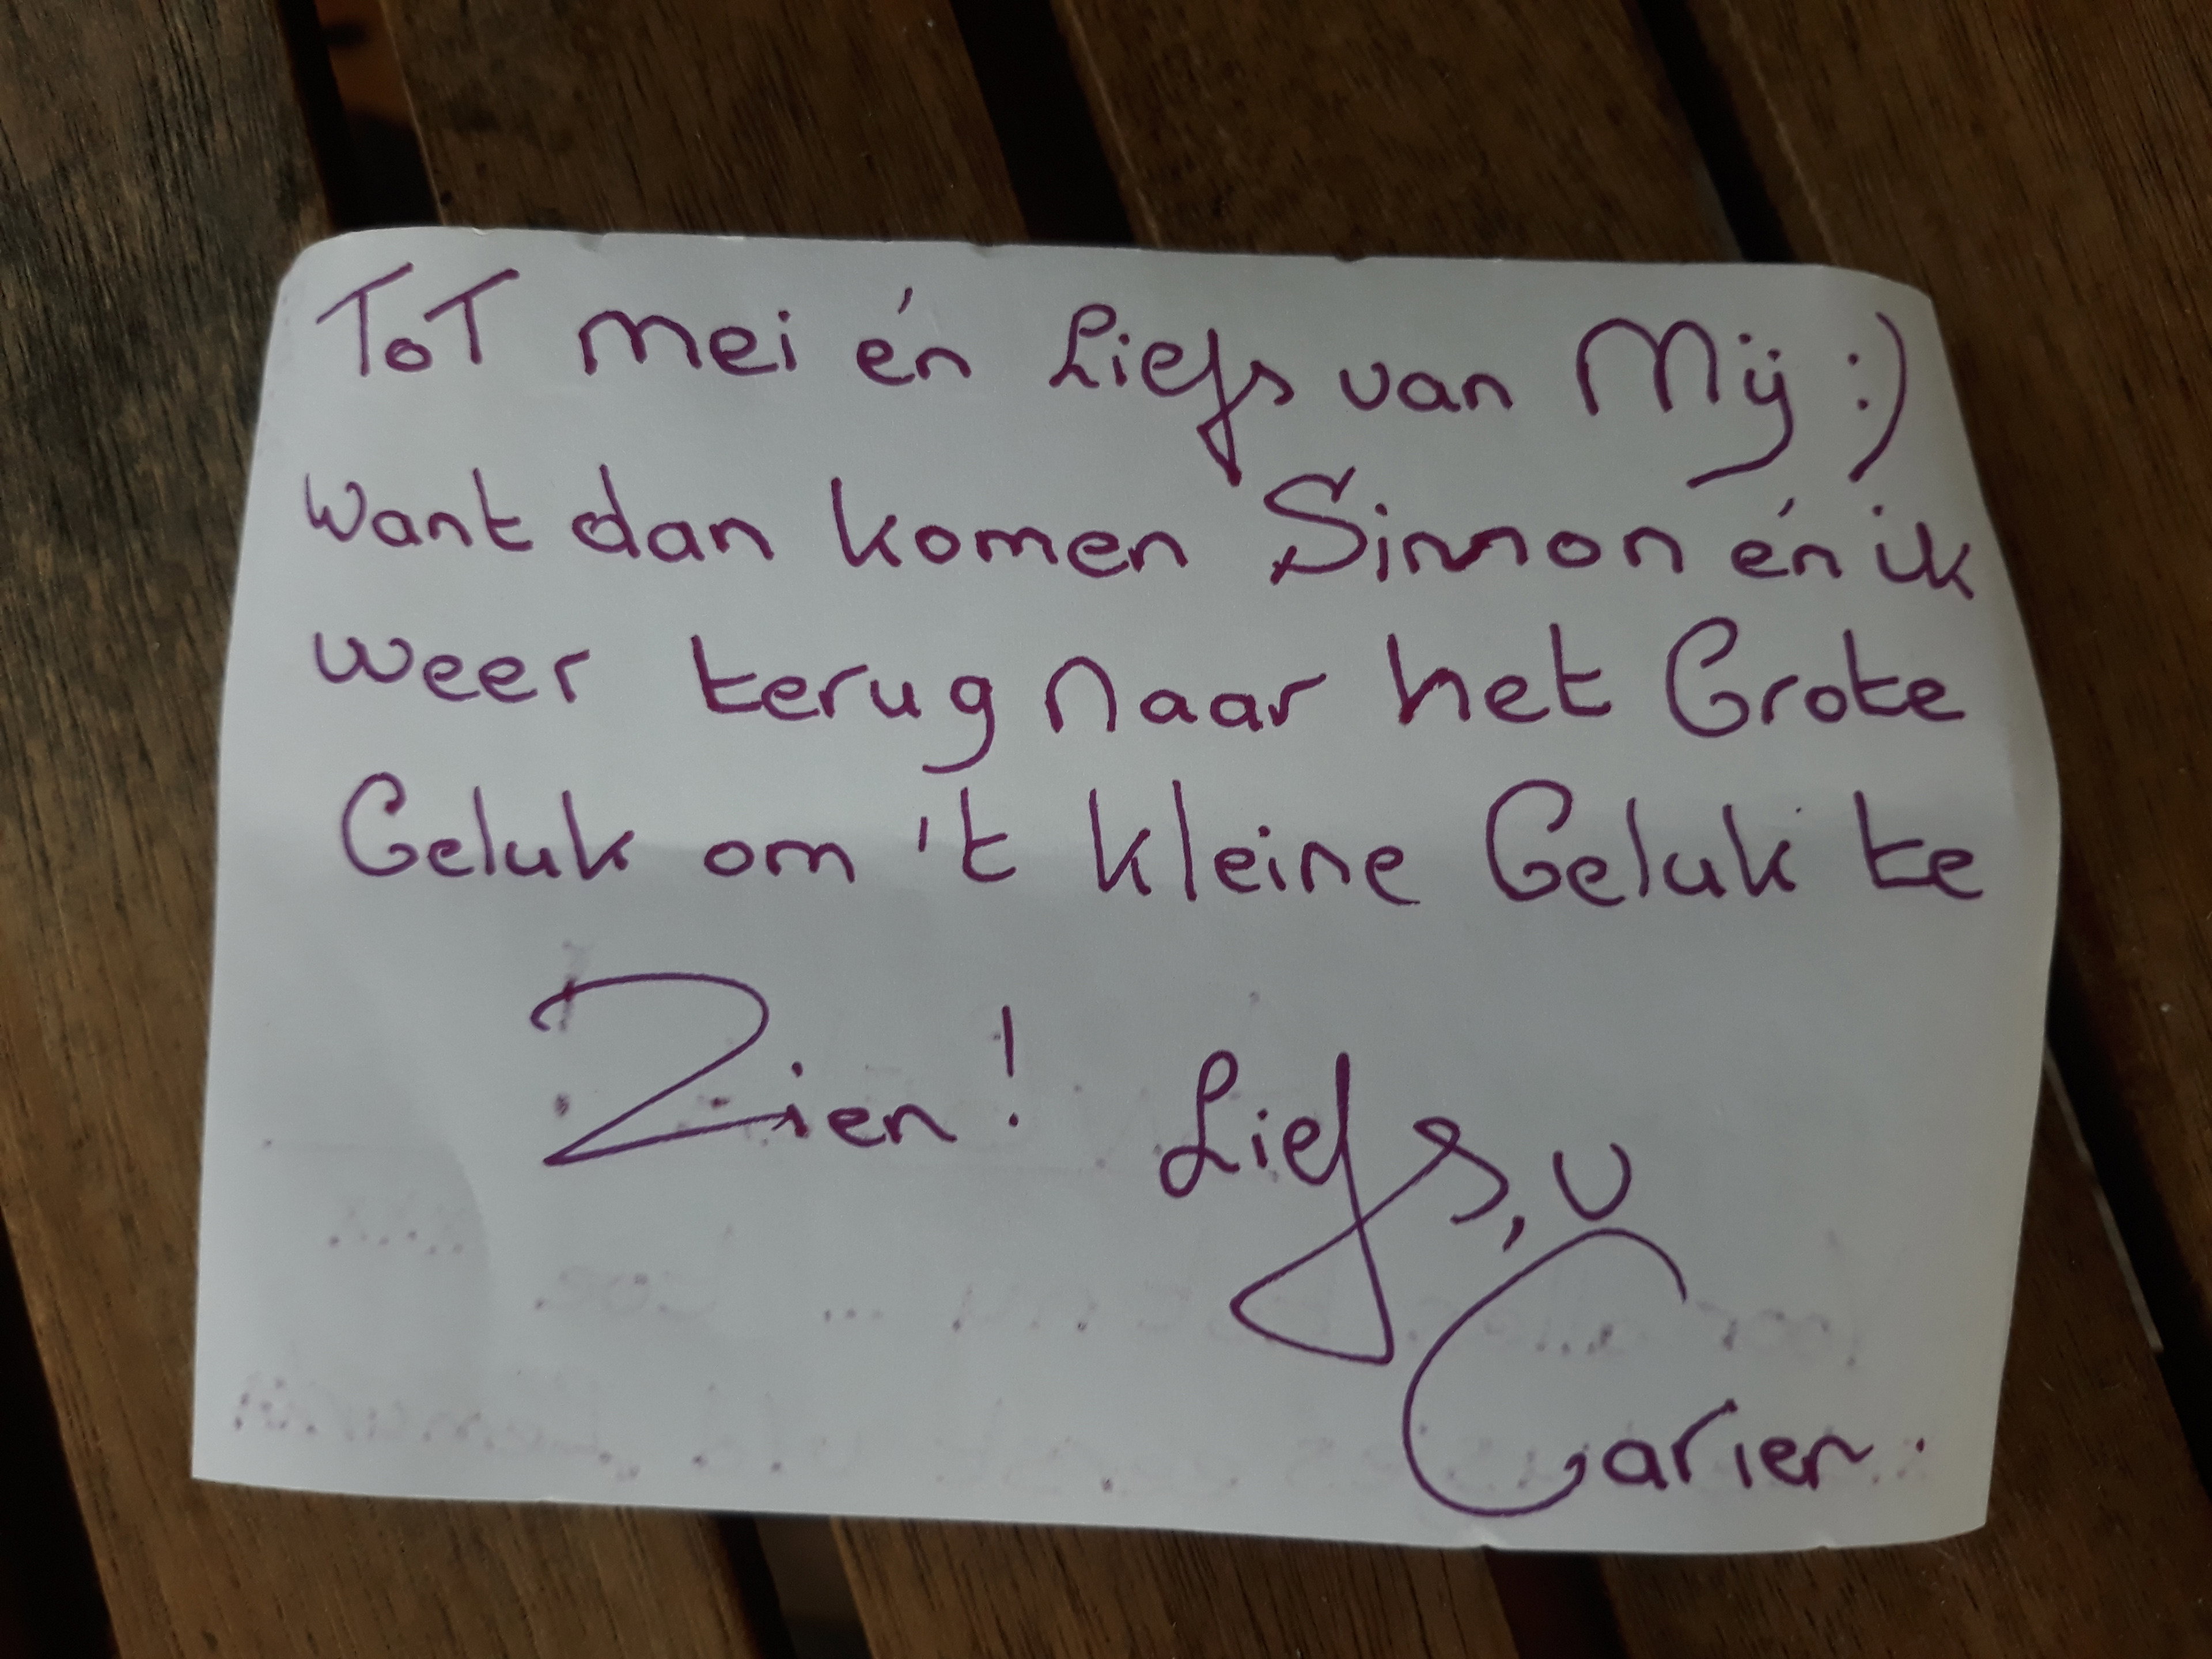 Tot mei én Liefs van Mij :)
want dan komen Sinnon én ik
weer terug naar het Grote
Geluk om 't kleine Geluk te
Zien! Liefs, v
Carien.